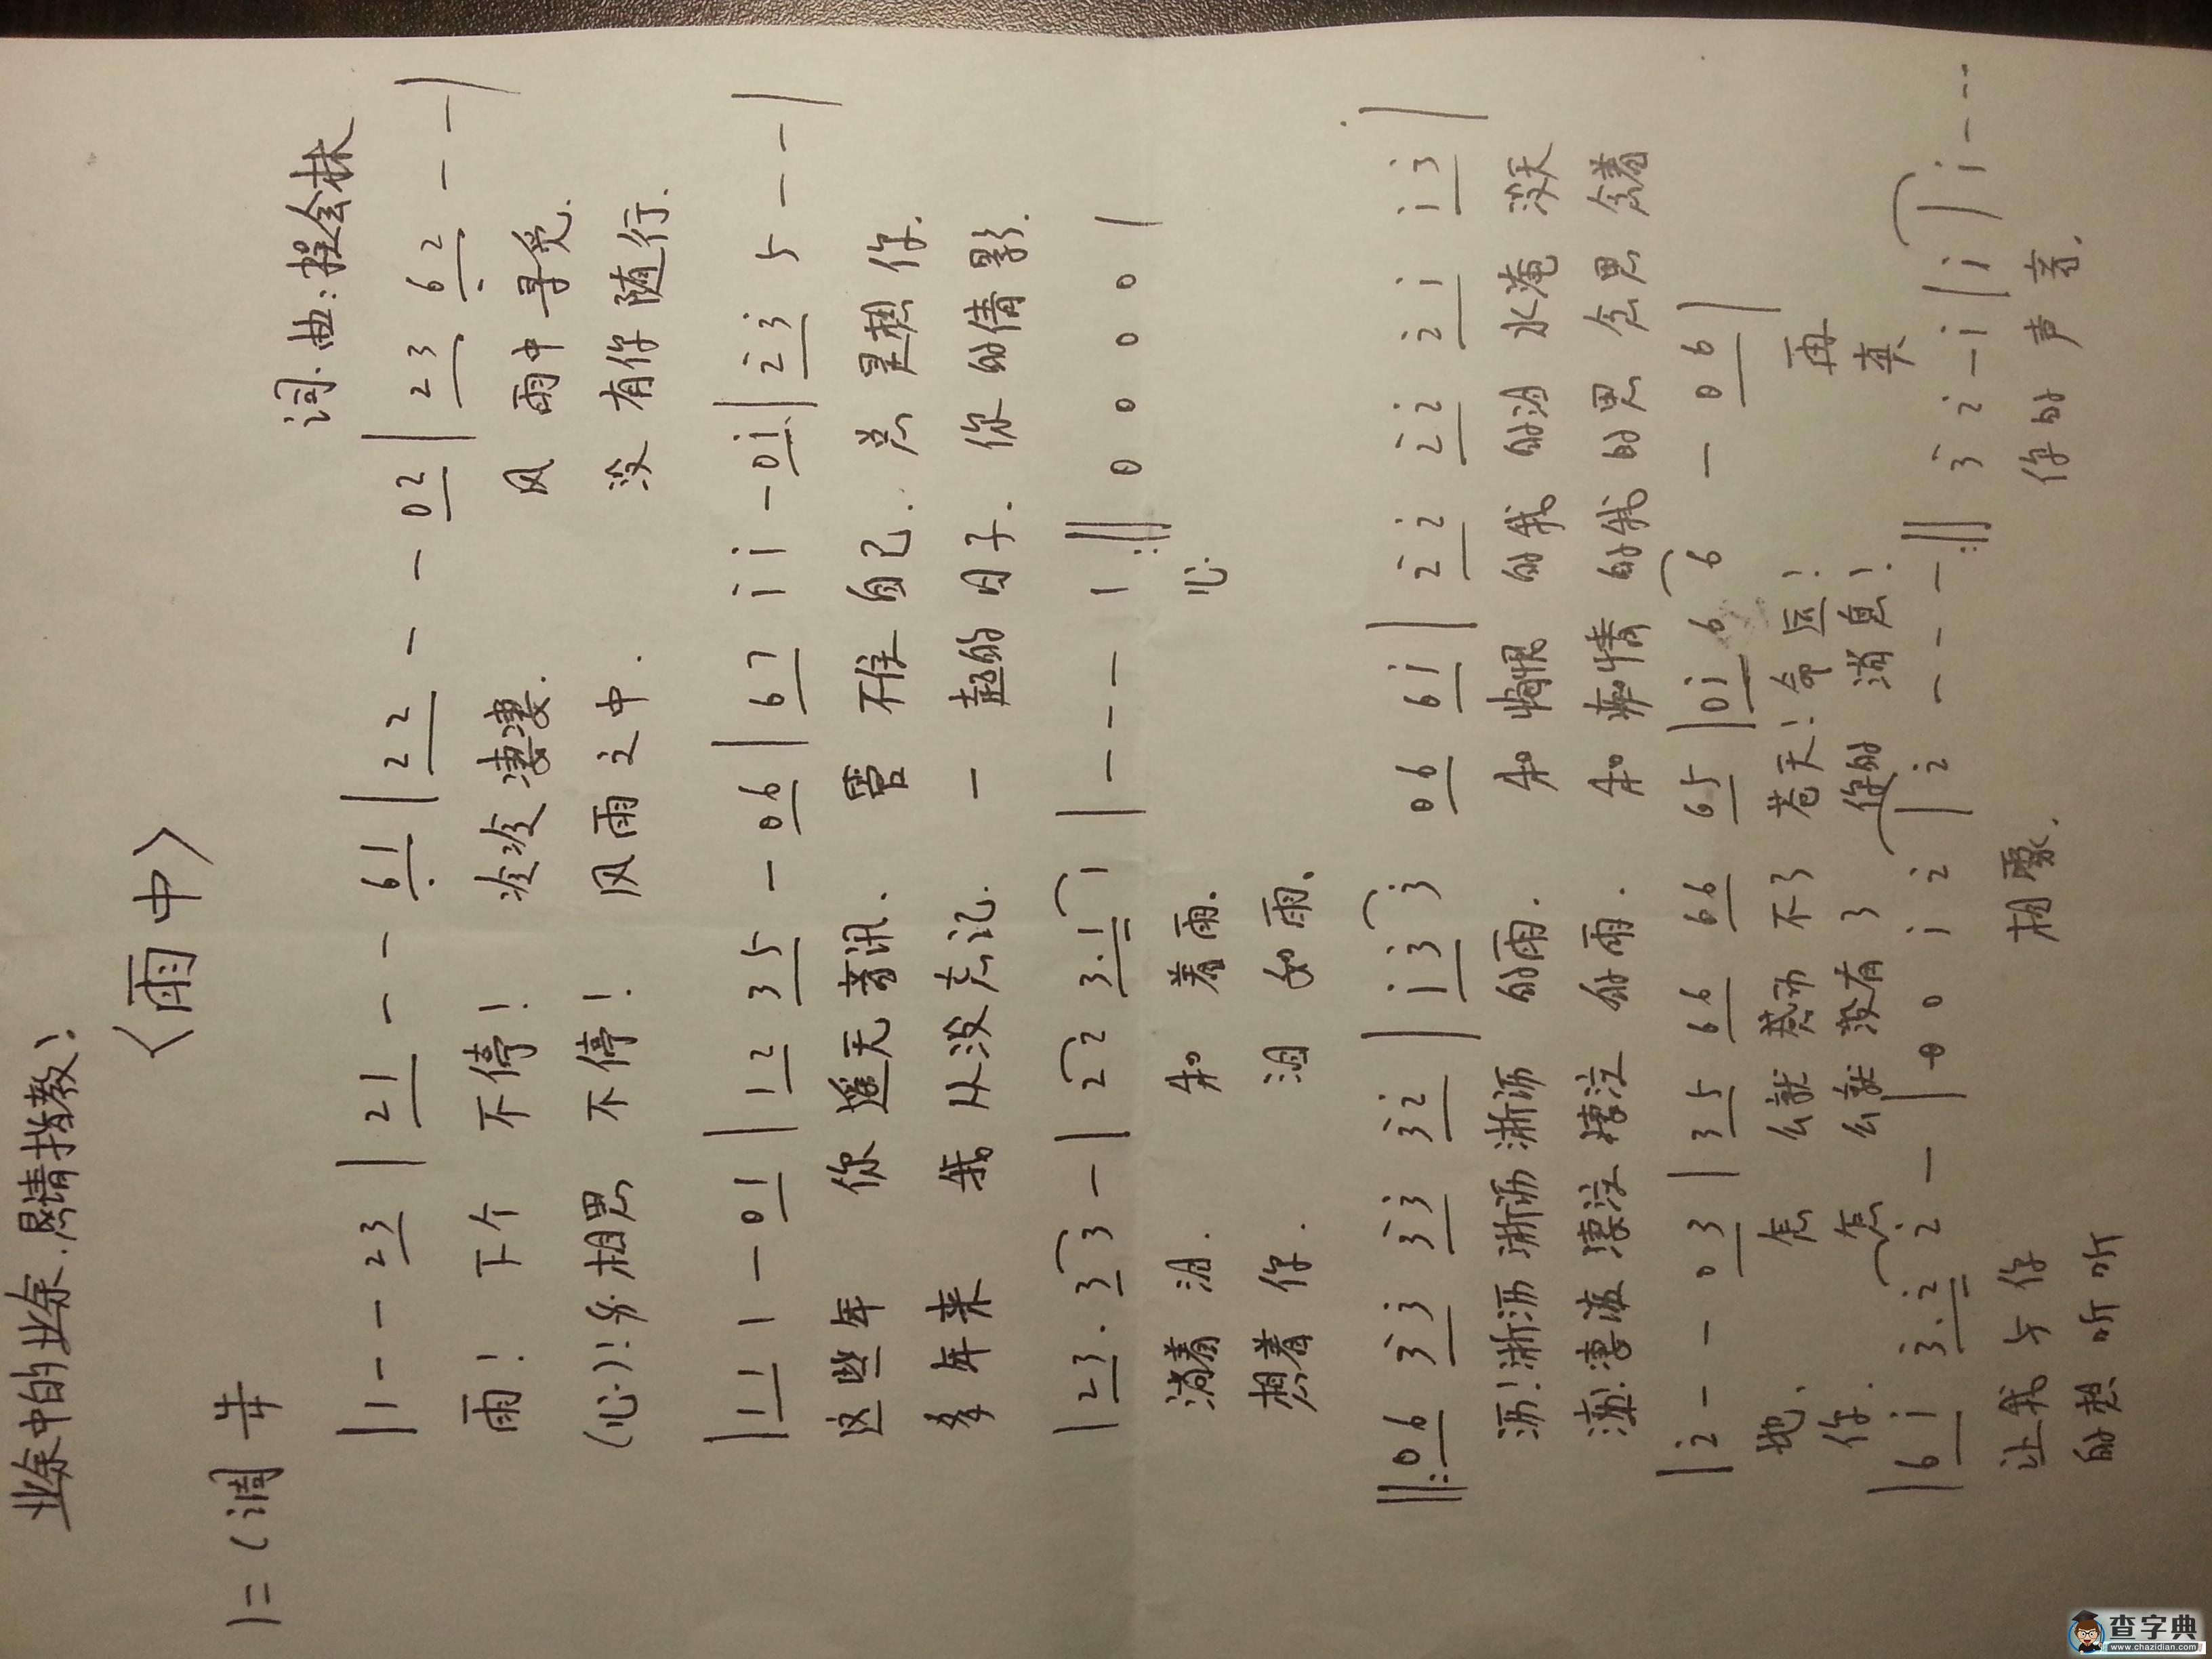 业余中的业余.恳请指教!
〈雨中〉
词.曲:程会林
1=C调 4/4
|1 - - 23 |21 - - 61 |22 - - 02 |23 62 - - |
雨! 下个 不停! 冷冷凄凄. 风 雨中 寻觅.
(心)!多相思 不停! 风雨之中. 没 有你 随行.
|11 1 - 01 |12 35 - 06 |67 i i - 0i |2 3 5 - - |
这些年 你 遥无音讯. 管 不住自己. 总 是想 你.
多年来 我 从没忘记. 一 起的日子. 你 的倩影.
|23. 3 3 - |2 2 3.1 1 |- - - 1 :|| 0 0 0 0 |
淌着 泪. 和 着雨. 心.
想着 你. 泪 如雨.
||:06 33 33 32 |i 3 3 06 6i |22 22 22 2i i i3 |
沥!淅沥淅沥淅沥 的雨. 和 悔恨 的我 的泪 水淹 没天
的雨. 和 痴情 的我 的思 念思 念着
|2 - - 03 |35 66 66 65 |0i 6 6 - 06 |
地. 怎 么就 感动 不了 苍天!命运! 再
你. 怎 么就 没有了 你的 消息! 真
|6i 3.2 2 - |0 0 i 2 |2 - - - :|| 3 2 - i |i |i - - -
让我与你 相聚. 你的 声音.
的想听听
查字典
www.chazidian.com